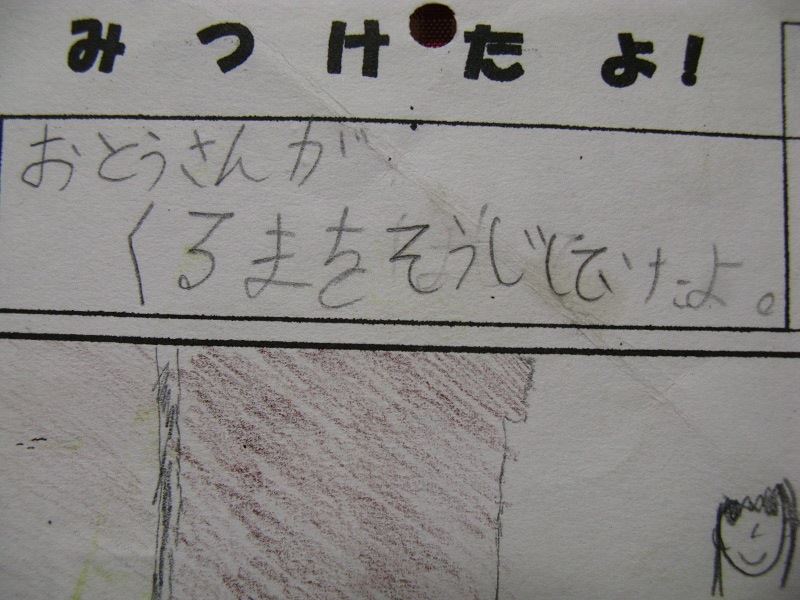 みつけたよ!
おとうさんが
くるまをそうじしていたよ。